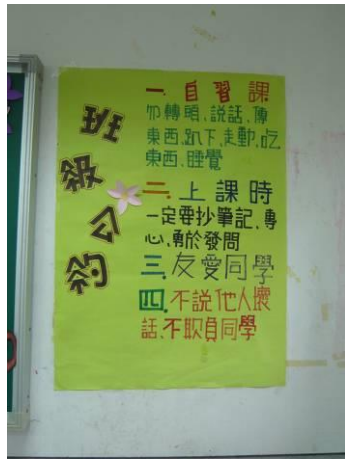 班級公約
一.自習課
勿轉頭、說話、傳
東西、趴下、走動、吃
東西、睡覺
二.上課時
一定要抄筆記、專
心、勇於發問
三.友愛同學
四.不說他人壞
話、不欺負同學